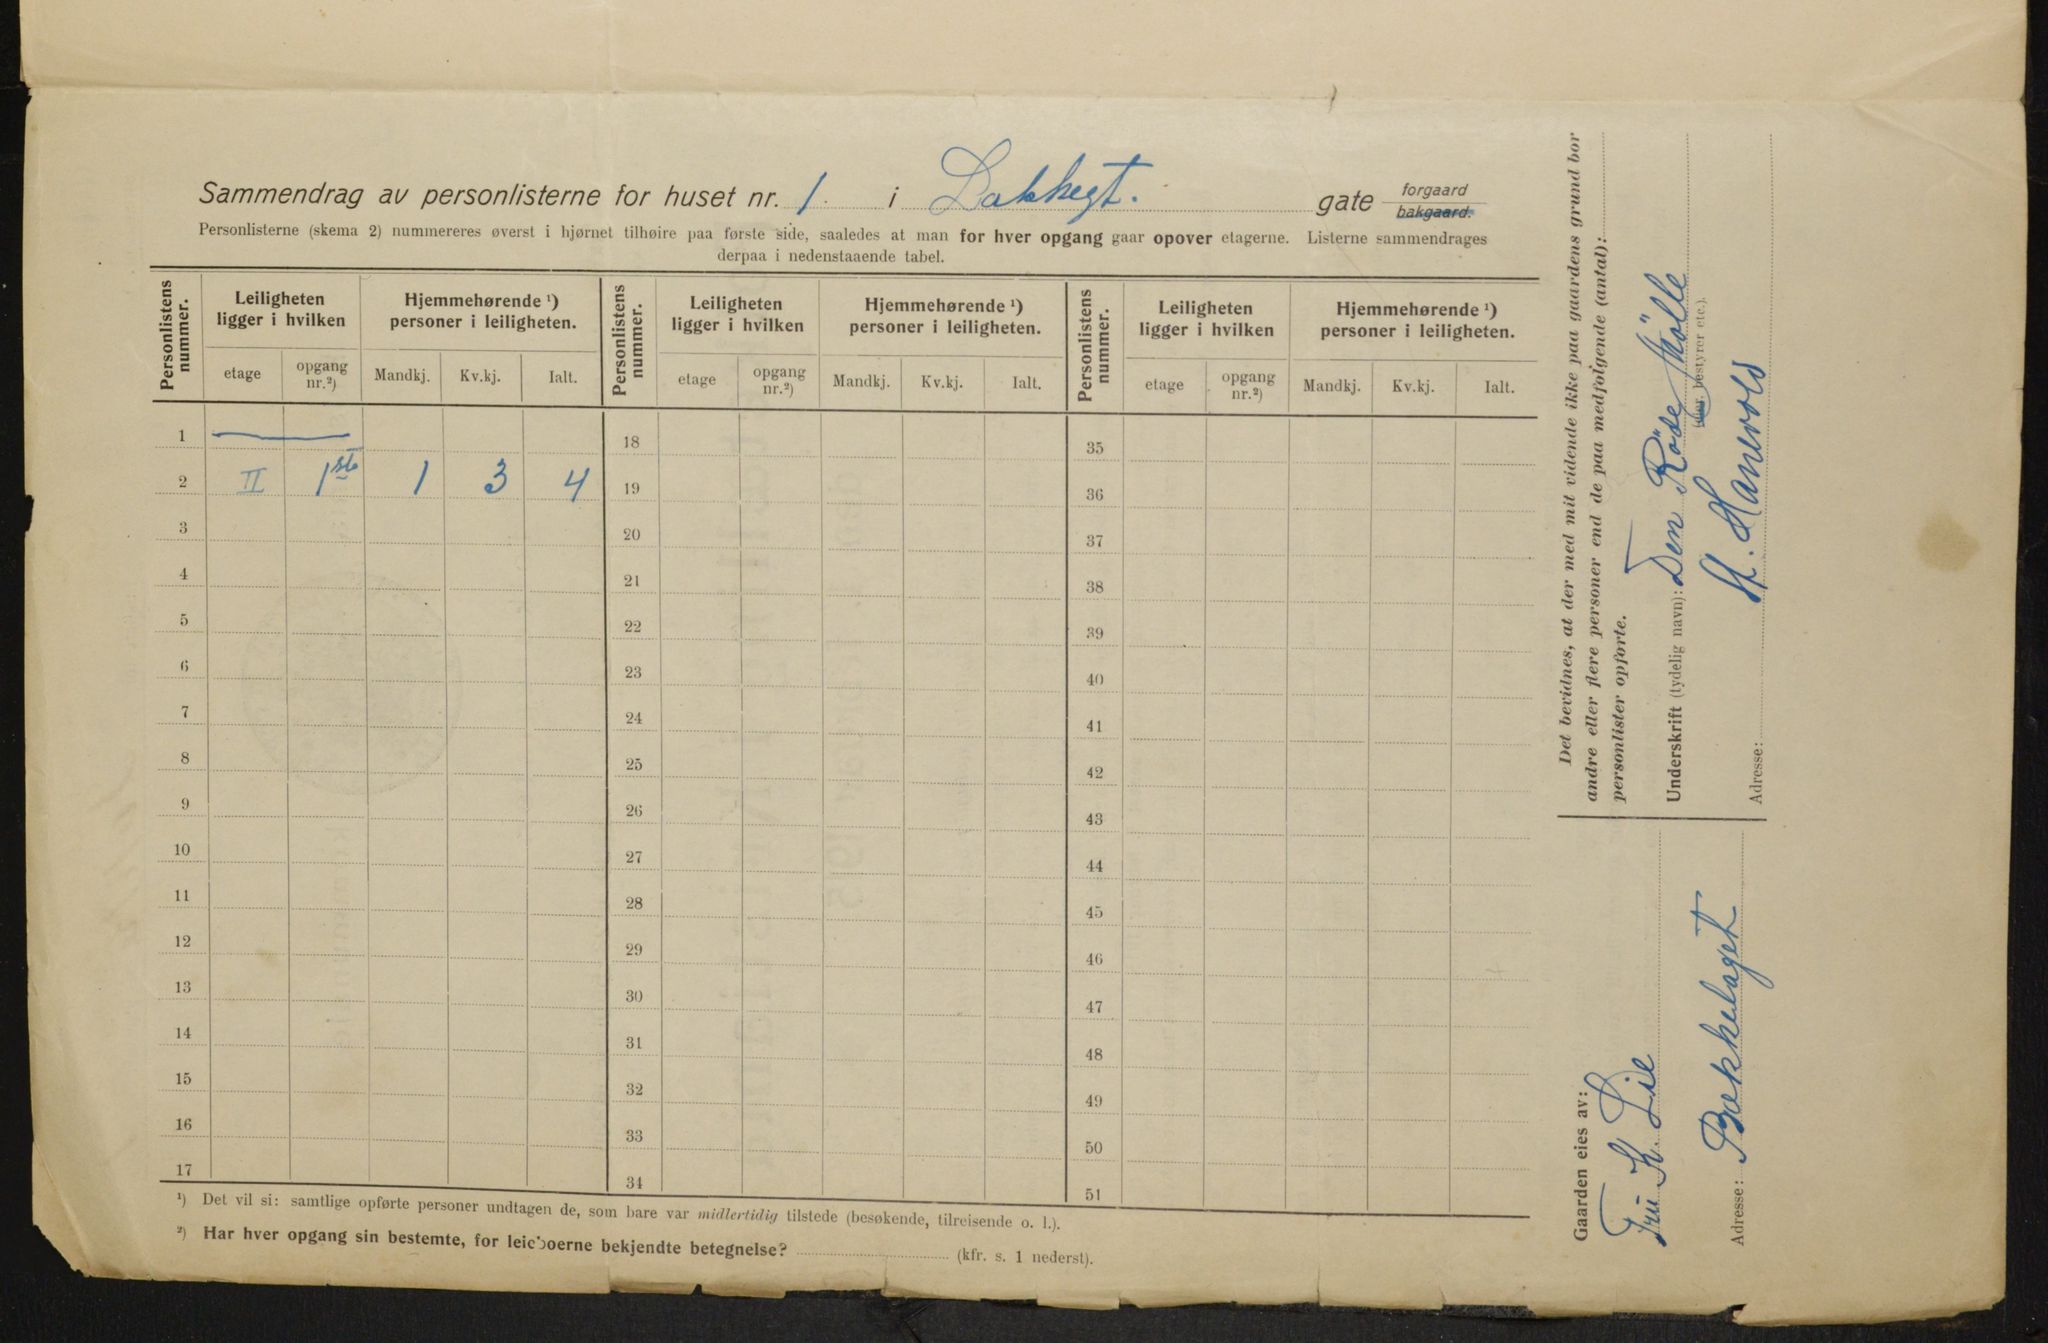 Sammendrag av personlisterne for huset nr. 1 i Lakkegt. gate forgaard
bakgaard.
Personlisterne (skema 2) nummereres øverst i hjørnet tilhøire paa første side, saaledes at man for hver opgang gaar opover etagerne. Listerne sammendrages
derpaa i nedenstaaende tabel.
Personlistens nummer. Leiligheten ligger i hvilken Hjemmehørende ¹) personer i leiligheten. Personlistens nummer. Leiligheten ligger i hvilken Hjemmehørende ¹) personer i leiligheten. Personlistens nummer. Leiligheten ligger i hvilken Hjemmehørende ¹) personer i leiligheten.
etage opgang nr.²) Mandkj. Kv.kj. Ialt. etage opgang nr.²) Mandkj. Kv.kj. Ialt. etage opgang nr.²) Mandkj. Kv.kj. Ialt.
1 18 35
2 II 1ste 1 3 4 19 36
3 20 37
4 21 38
5 22 39
6 23 40
7 24 41
8 25 42
9 26 43
10 27 44
11 28 45
12 29 46
13 30 47
14 31 48
15 32 49
16 33 50
17 34 51
¹) Det vil si: samtlige opførte personer undtagen de, som bare var midlertidig tilstede (besøkende, tilreisende o. l.).
²) Har hver opgang sin bestemte, for leieboerne bekjendte betegnelse? (kfr. s. 1 nederst).
Det bevidnes, at der med mit vidende ikke paa gaardens grund bor
andre eller flere personer end de paa medfølgende (antal):
personlister opførte.
Underskrift (tydelig navn): Den Röde Mölle
(eier, bestyrer etc.).
H. Hanevold
Adresse:
Gaarden eies av:
Fru K. Lie
Adresse: Bækkelaget